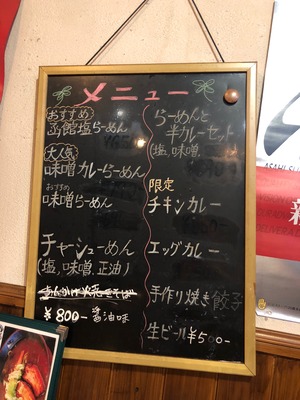 メニュー
おすすめ
函館塩らーめん
大人気
味噌カレーらーめん
おすすめ
味噌らーめん
チャーシューめん
(塩、味噌、正油)
あんかけ焼そば
¥800- 醤油味
らーめんと
半カレーセット
(塩、味噌、
限定
チキンカレー
エッグカレー
手作り焼き餃子
生ビール¥500-
ASAHI SU